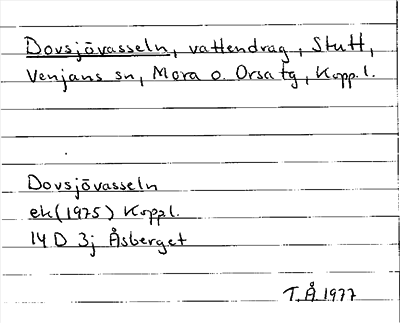 Dovsjövasseln, vattendrag, Stutt,
Venjans sn, Mora o. Orsa tg, Kopp. l.
Dovsjövasseln
ek (1975) Koppl.
14 D 3j Åsberget
T.Å. 1977